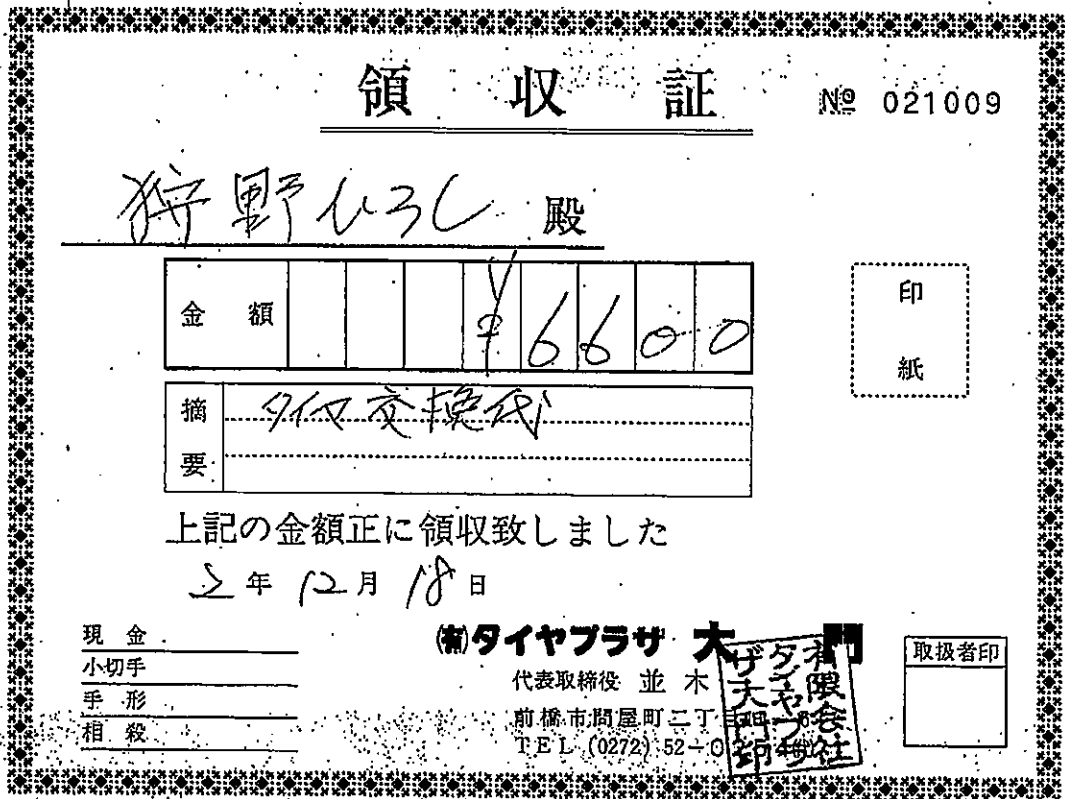 領収証
№ 021009
狩野ひろし 殿
金額 ¥6600
印紙
摘要 タイヤ交換代
上記の金額正に領収致しました
2年12月18日
現金
小切手
手形
相殺
㈲タイヤプラザ 大門
代表取締役 並木
前橋市問屋町二丁目
TEL (0272) 52-0
有限会社タイヤプラザ大門印
取扱者印